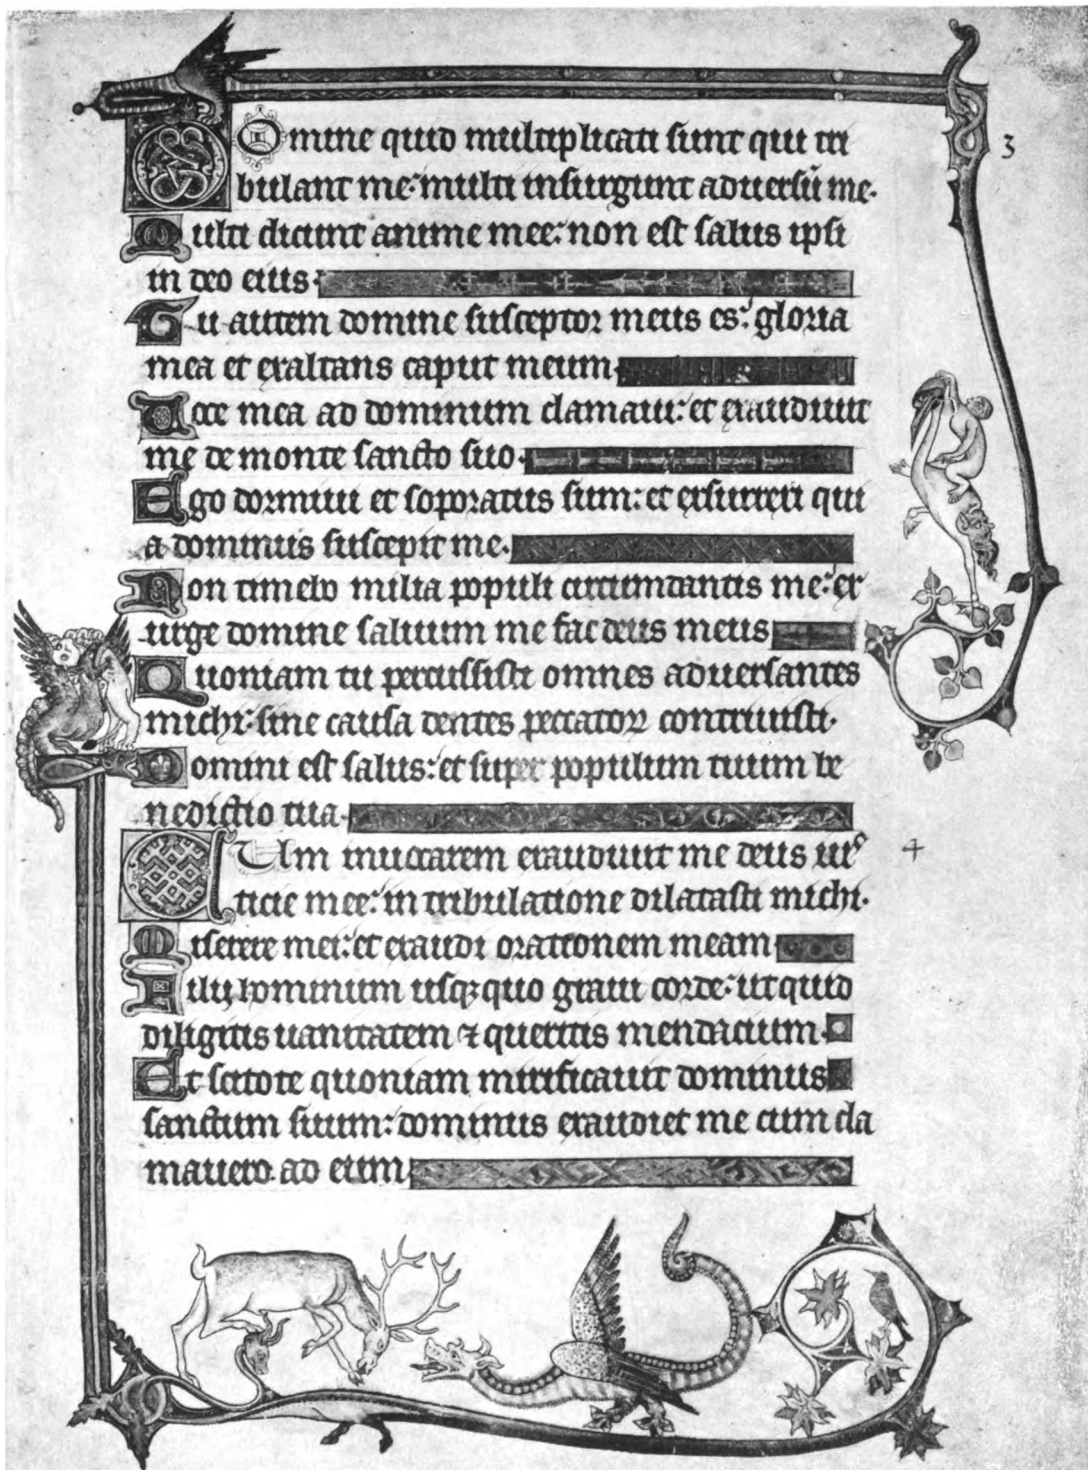 Domine quid multiplicati sunt qui tri
3
bulant me: multi insurgunt adversū me.
Multi dicunt anime mee: non est salus ipsi
in deo eius.
Tu autem domine susceptor meus es: gloria
mea et exaltans caput meum.
Voce mea ad dominum clamavi: et exaudivit
me de monte sancto suo.
Ego dormivi et soporatus sum: et exsurrexi qui
a dominus suscepit me.
Non timebo milia populi circumdantis me: ex
urge domine salvum me fac deus meus
Quoniam tu percussisti omnes adversantes
michi: sine causa dentes peccatoꝝ contrivisti.
Domini est salus: et super populum tuum be
nedictio tua.
Cum invocarem exaudivit me deus ius
4
ticie mee: in tribulatione dilatasti michi.
Miserere mei: et exaudi orationem meam
Filij hominum usqꝫ quo gravi corde: ut quid
diligitis vanitatem ⁊ queritis mendacium.
Et scitote quoniam mirificavit dominus
sanctum suum: dominus exaudiet me cum cla
mavero ad eum